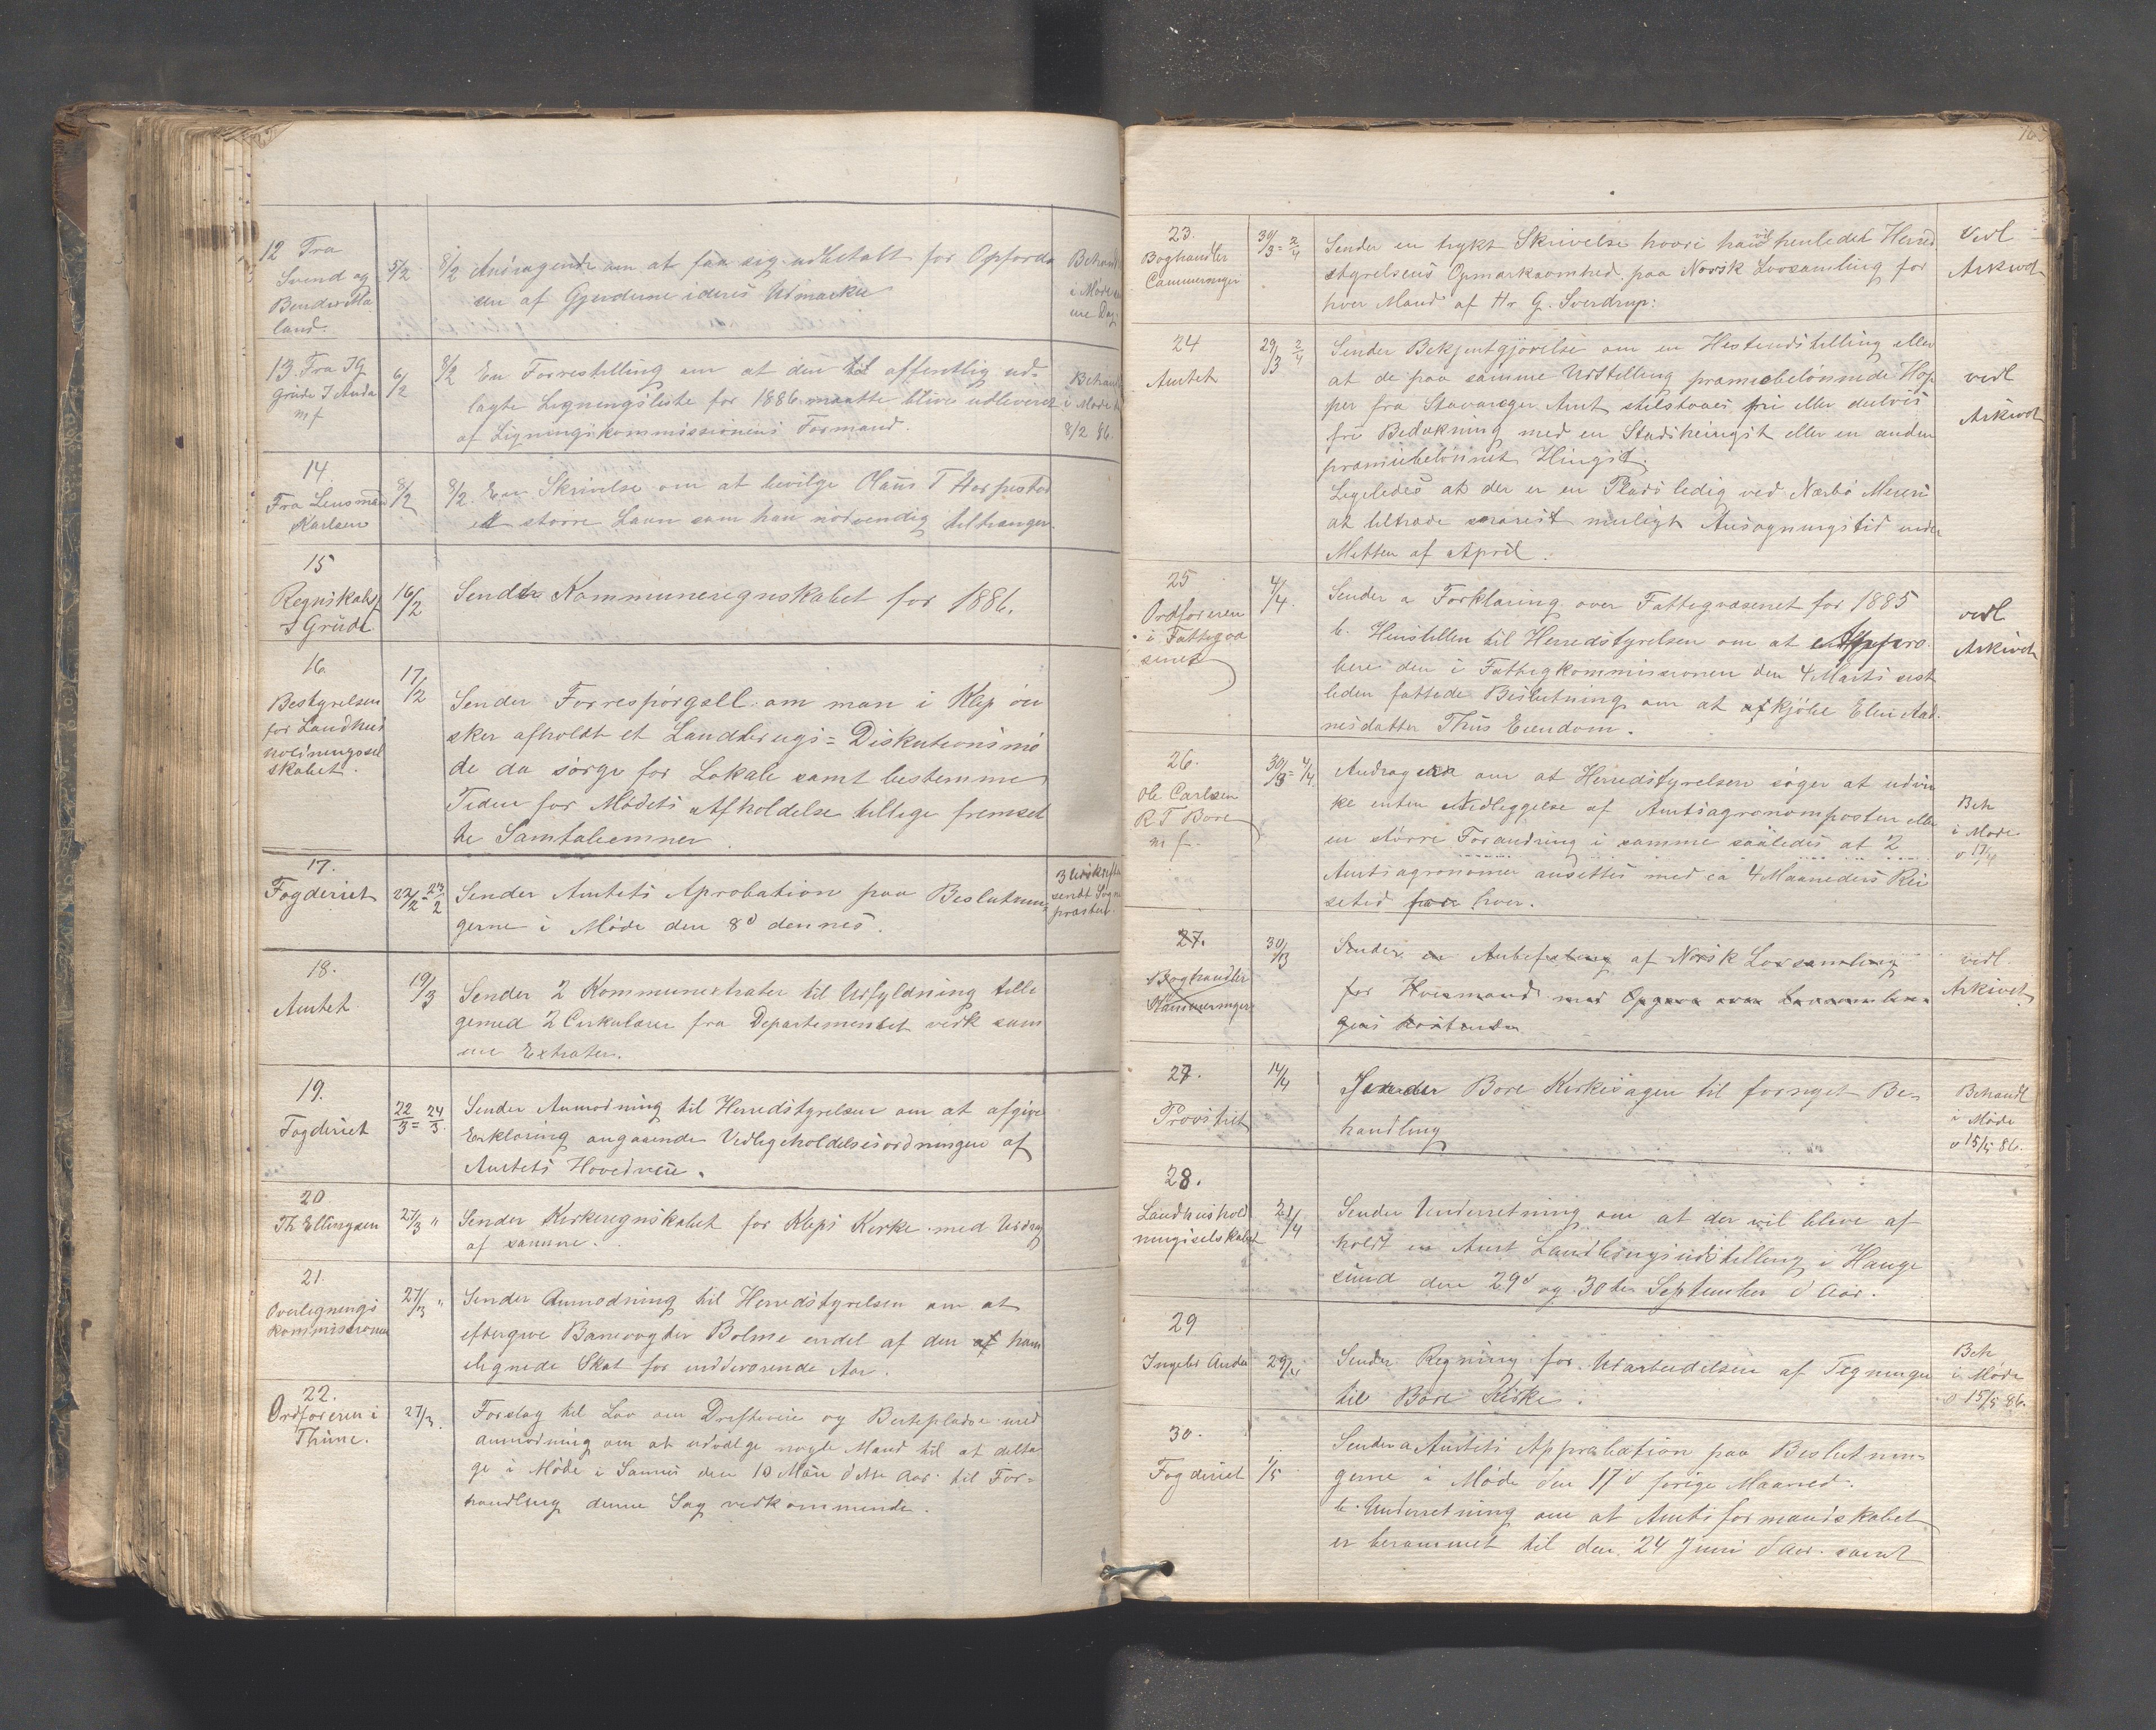 12 Fra
Svend og
Bender Ma
land.
5/2
8/2 Andragende om at faa seg udbetalt for Opførds
len af Gjerderne i deres Udmarker
Behandl
i Møde
13. Fra IG
Grude I Anda
m f
6/2
8/2 En Forrestilling om at den til offentlig ud-
lagte Ligningsliste for 1886 maatte blive udleveret
af Ligningskommissionens Formand.
Behandl
i Møde
8/2 86.
14
Fra Lensmand
Karlsen
8/2
8/2. En Skrivelse om at bevilge Claus T Horpestad
et større Laan som han nødvendig tiltrænger.
15
Regnskabsf
I Grude
16/2
Sender Kommuneregnskabet for 1886.
16.
Bestyrelsen
for Landhus
holdningssel
skabet.
17/2
Sender Forrespørgsell om man i Klep øn
sker afholdt et Landbrugs=Diskutionsmø
de da sørge for Lokale samt bestemme
Tiden for Mødets Afholdelse tillige fremset
te Samtaleemner.
17.
Fogderiet
22/2 = 23/2
Sender Amtets Aprobation paa Beslutnin=
gerne i Møde den 8d dennes.
3 Udskrifter
sendt Sogne
præsten.
18.
Amtet
19/3
Sender 2 Kommuneextrater til Udfyldning tilli
gemed 2 Cirkulærer fra Departementet vedk sam
me Extrater.
19.
Fogderiet
22/3 = 24/3.
Sender Anmodning til Herredstyrelsen om at afgive
Erklæring angaaende Vedligeholdelsesordningen af
Amtets Hovedveie.
20
Th Ellingsen
27/3 "
Sender Kirkeregnskabet for Kleps Kirke med Udrag
af samme.
21.
Overlegnings
kommissionen
27/3 "
Sender Anmodning til Herredstyrelsen om at
eftergive Banevogter Bolme endel af den af ham
ilignede Skat for indeværende Aar.
22.
Ordføreren i
Thime.
27/3.
Forslag til Lov om Drifteveie og Bedepladse med
anmodning om at udvælge nogle Mænd til at delta
ge i Møde i Sannes den 10 Mai dette Aar til For=
handling denne Sag vedkommende.
23.
Boghandler
Cammermeyer
30/3 = 2/4
Sender en trykt Skrivelse hvori han vil henledet Herred
styrelsens Opmærksomhed paa Norsk Lovsamling for
hver Mand af Hr G. Sverdrup:
Vedl
Arkivet
24
Amtet
29/3 2/4
Sender Bekjentgjørelse om en Hesteudstilling eller
at de paa samme Udstilling præmiebelønnede Hop
per fra Stavanger Amt stilstaaes fri eller delvis
fri Bedækning med en Stadshingst eller en anden
præmiebelønnet Hingst.
Legeledes at der er en Plads ledig ved Nærbø Meieri
at tiltræde snarest muligt Ansøgningstid inden
Midten af April.
vedl
Arkivet
25
Ordføreren
i Fattigvæ
senet
4/4.
Sender a Forklaring over Fattigvæsenet for 1885
b. Henstillen til Herredstyrelsen om at appro
bere den i Fattigkommissionen den 4 Marts sidst
leden fattede Beslutning om at afkjøbe Elen Aad
nesdatter Thus Eiendom.
vedl
Arkivet
26.
Ole Carlsen
R T Bore
m f.
30/3 = 4/4.
Andragende om at Herredstyrelsen søger at udvir
ke enten Nedleggelse af Amtsagronomposten eller
en større Forandring i samme saaledes at 2
Amtsagronomer ansettes med ca 4 Maaneders Rei
setid for hver.
Beh
i Møde
d 17/4
27.
Boghandler
Kammermeyer
30/3
Sender en Anbefaling af Norsk Lovsamling
for Hvermand med Opgave over Lovsamlin
gens Kostende
vedl
Arkivet
27.
Provstiet
14/4
Sender Bore Kirkesagen til fornyet Be-
handling
Behandl
i Møde
d 15/5 86.
28.
Landhushold
ningsselskabet
21/4
Sender Underretning om at der vil blive af
holdt en Amt Landbrugsudstilling i Hauge
sund den 29d og 30te September d Aar.
29
Ingebr Anda
29/4
Sender Regning for Udarbeidelsen af Tegninger
til Bore Kirke.
Beh
i Møde
d 15/5 86.
30.
Fogderiet
1/5
Sender a Amtets Approbation paa Beslutnin=
gerne i Møde den 17d forige Maaned.
b. Underretning om at Amtsformandskabet
er berammet til den 24 Juni d Aar. samt